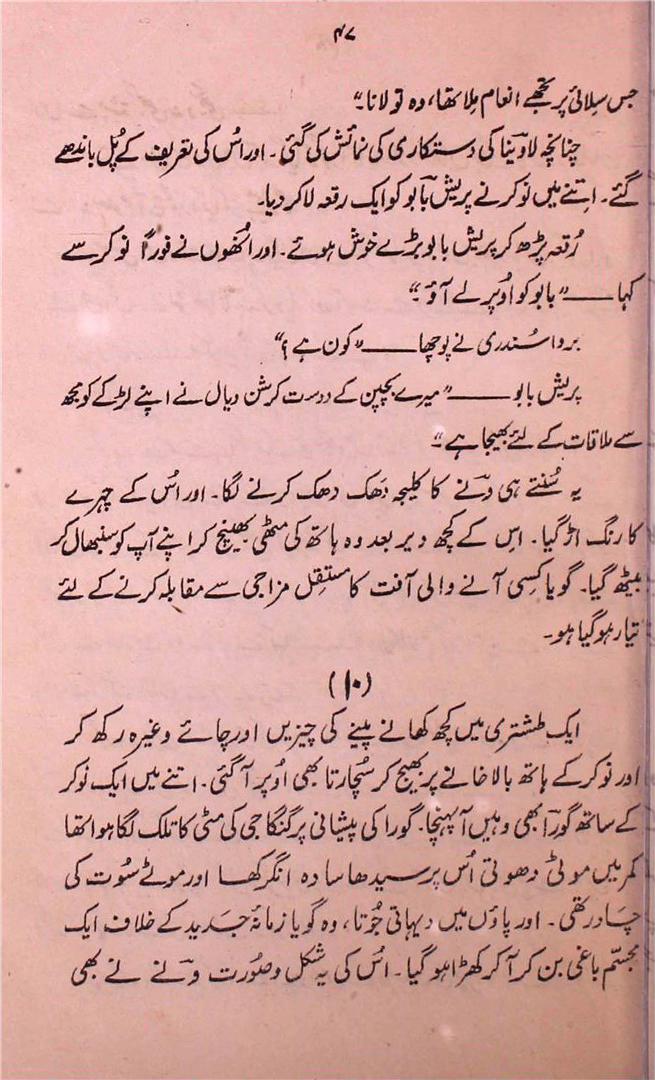 ۴۷
جس سِلائی پر تجھے انعام مِلا تھا، وہ تو لانا۔“
چنانچہ لاوینا کی دستکاری کی نمائش کی گئی۔ اور اُس کی تعریف کے پُل باندھے
گئے۔ اِتنے میں نوکر نے پریش بابو کو ایک رقعہ لا کر دیا۔
رُقعہ پڑھ کر پریش بابو بڑے خوش ہوئے۔ اور اُنھوں نے فوراً نوکر سے
کہا ——”بابو کو اُوپر لے آؤ۔“
بروا سُندری نے پوچھا ——”کون ہے؟“
پریش بابو ——”میرے بچپن کے دوست کرشن دیال نے اپنے لڑکے کو مجھ
سے ملاقات کے لئے بھیجا ہے۔“
یہ سُنتے ہی ونے کا کلیجہ دَھک دھک کرنے لگا۔ اور اُس کے چہرے
کا رنگ اڑ گیا۔ اِس کے کچھ دیر بعد وہ ہاتھ کی مٹھی بھینچ کر اپنے آپ کو سنبھال کر
بیٹھ گیا۔ گویا کسِی آنے والی آفت کا مستقِل مزاجی سے مقابلہ کرنے کے لئے
تیار ہو گیا ہو۔
(۱۰)
ایک طشتری میں کچھ کھانے پینے کی چیزیں اور چائے وغیرہ رکھ کر
اور نوکر کے ہاتھ بالا خانے پر بھیج کر سُچارتا بھی اُوپر آگئی۔ اتنے میں ایک نوکر
کے ساتھ گورا بھی وہیں آ پہنچا۔ گورا کی پیشانی پر گنگا جی کی مٹی کا تلک لگا ہوا تھا
کمر میں موٹی دھوتی اُس پر سیدھا سادہ انگرکھا اور موٹے سُوت کی
چادر تھی۔ اور پاؤں میں دیہاتی جُوتا، وہ گویا زمانۂ جَدید کے خلاف ایک
مجسّم باغی بن کر آ کر کھڑا ہو گیا۔ اُس کی یہ شکل وصُورت ونے نے بھی